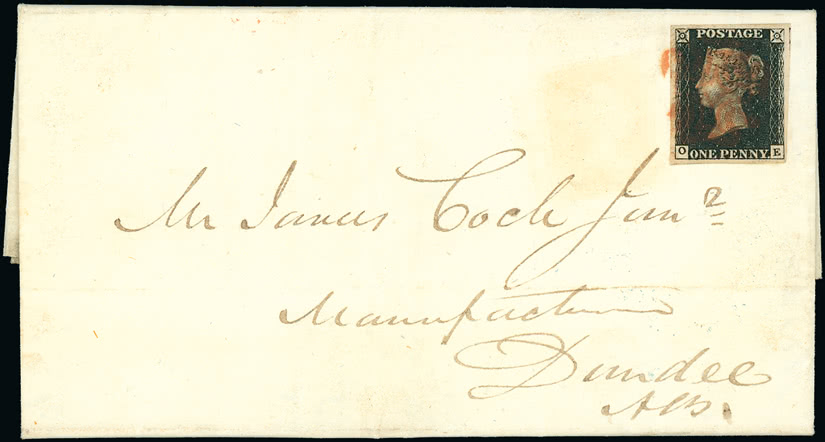 POSTAGE
O ONE PENNY E
Mr James Cock Junr
Manufacturer
Dundee
NB.